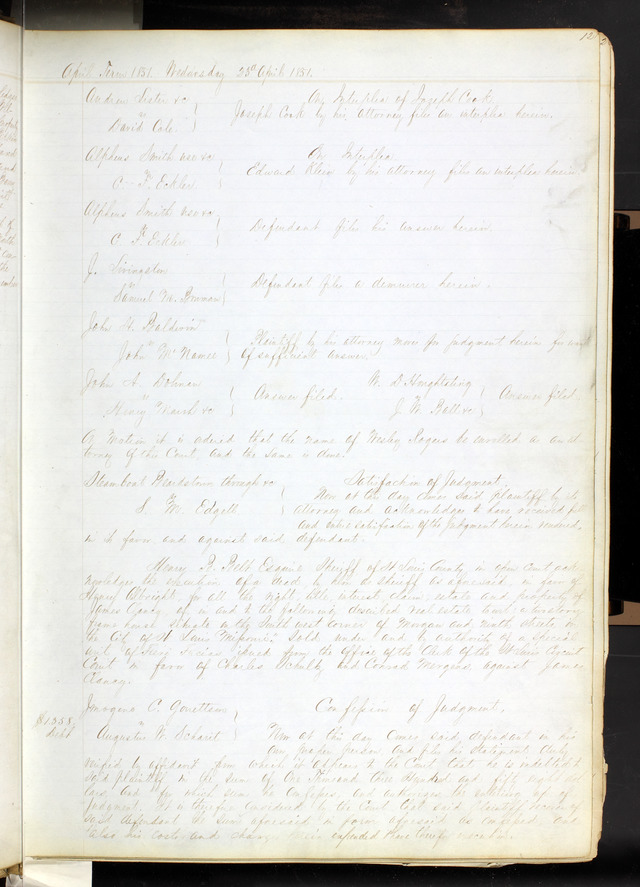 12
April Term 1851. Wednesday 23d April 1851.
Andrew &c
vs
David Cole
On Interplea of Joseph Cook
Joseph Cook by his attorney files an interplea herein.
Alpheus Smith use &c
vs
C. F. Eckler
On Interplea
Edward Klein by his attorney files an interplea herein
Alpheus Smith use &c
vs
C. F. Eckler
Defendant files his answer herein
J. Livingston
vs
Samuel M. Bowman
Defendant files a demurrer herein.
John H. Baldwin
vs
John McNamee
Plaintiff by his attorney moves for judgment herein for want
of sufficient answer
John A. Dohman
vs
Henry Marsh &c
Answer filed.
W. D. Houghtaling
vs
J. W. Bell &c
Answer filed
On motion it is ordered that the name of Wesley Rogers be enrolled as an at
torney of this Court, and the same is done.
Steam boat through &c
vs
S. M. Edgell
Satisfaction of Judgment.
Now at this day comes said plaintiff by its
attorney and acknowledges to have received full
and entire satisfaction of the judgment herein rendered,
in its favor and against said defendant.
Henry B. Belt Esquire Sheriff of St Louis County in open Court ack
nowledges the execution of a deed by him as sheriff as aforesaid in favor of
Henry Albright, for all the right, title, interest, claim, estate and property of
James Casey of in and to the following described real estate
frame house situate on the South west corner of Morgan and Ninth streets in
the City of St Louis Missouri, sold under and by authority of a special
writ of Fieri Facias issued from the office of the Clerk of the St Louis Circuit
Court in favor of Charles Schultz and Conrad against James
Casey.
$1358
Debt
C.
vs
Augustus W.
Confession of Judgment.
Now at this day comes said defendant in his
own proper person and files his statement duly
verified by affidavit from which it appears to the Court that he is indebted to
said plaintiff in the sum of One thousand three hundred and fifty eight dol
lars, and for which sum he confesses, and authorizes the entering up of a
judgment. It is therefore considered by the Court that said plaintiff recover of
said defendant the sum aforesaid in form aforesaid as confessed, and
also his costs and charges herein expended have therefor execution.